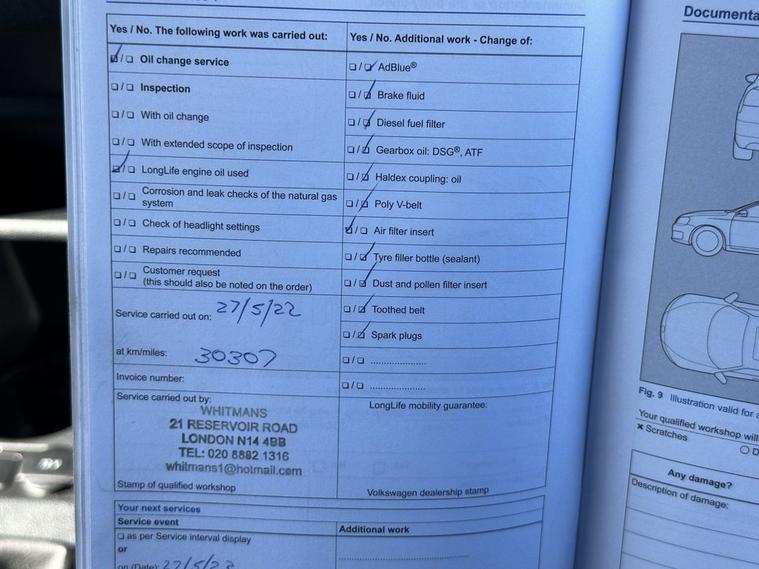 Yes / No. The following work was carried out:
☑/☐ Oil change service
☐/☐ Inspection
☐/☐ With oil change
☐/☐ With extended scope of inspection
☑/☐ LongLife engine oil used
☐/☐ Corrosion and leak checks of the natural gas
system
☐/☐ Check of headlight settings
☐/☐ Repairs recommended
☐/☐ Customer request
(this should also be noted on the order)
Service carried out on: 27/5/22
at km/miles: 30307
Invoice number:
Service carried out by:
WHITMANS
21 RESERVOIR ROAD
LONDON N14 4BB
TEL: 020 8882 1316
whitmans1@hotmail.com
Stamp of qualified workshop
Yes / No. Additional work - Change of:
☐/☑ AdBlue®
☐/☑ Brake fluid
☐/☑ Diesel fuel filter
☐/☑ Gearbox oil: DSG®, ATF
☐/☑ Haldex coupling: oil
☐/☑ Poly V-belt
☑/☐ Air filter insert
☐/☑ Tyre filler bottle (sealant)
☐/☑ Dust and pollen filter insert
☐/☑ Toothed belt
☐/☑ Spark plugs
☐/☐ ....................
☐/☐ ....................
LongLife mobility guarantee:
Volkswagen dealership stamp
Your next services
Service event
☐ as per Service interval display
or
on (Date):
Additional work
Documenta
Fig. 9 Illustration valid for a
Your qualified workshop will
× Scratches
Any damage?
Description of damage: